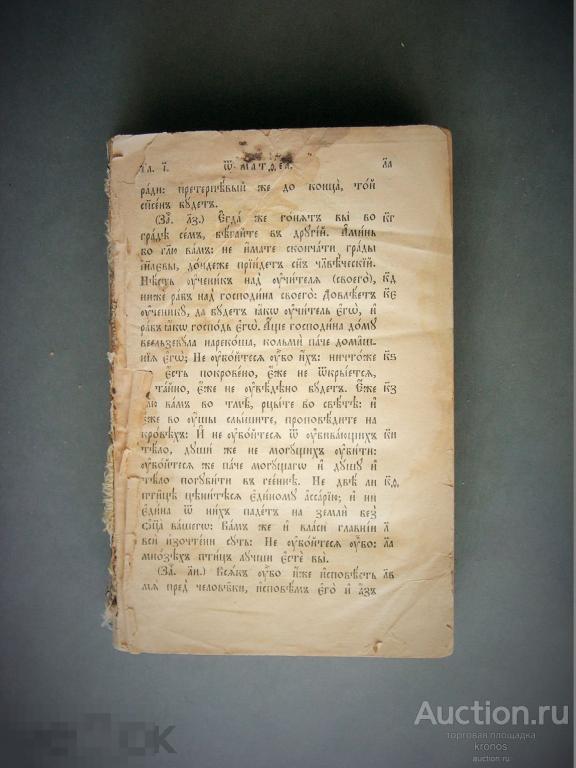 Гл. і҃. Ѿ МАТѲЕА. л҃а
ра́ди: претерпѣ́вый же до конца̀, то́й
сп҃се́нъ бу́детъ.
(За҃. л҃з.) Є҆гда́ же го́нятъ вы̀ во к҃г
гра́дѣ се́мъ, бѣ́гайте въ дрꙋгі́й. А҆ми́нь
бо гл҃ю ва́мъ: не и҆́мате сконча́ти гра́ды
і҆и҃левы, до́ндеже прїи́детъ сн҃ъ чл҃вѣ́ческїй.
Нѣ́сть ᲂу҆чени́къ над̾ ᲂу҆чи́теля (своего̀), к҃д
ниже́ ра́бъ над̾ господи́на своего̀: Довлѣ́етъ к҃є
ᲂу҆ченикꙋ̀, да бꙋ́детъ ꙗ҆́кѡ ᲂу҆чи́тель є҆гѡ̀, и҆
ра́бъ ꙗ҆́кѡ госпо́дь є҆гѡ̀. А҆́ще господи́на до́мꙋ
веельзевꙋ́ла нареко́ша, кольмѝ па́че дома́ш-
нїѧ є҆гѡ̀; Не ᲂу҆бо́йтесѧ ᲂу҆̀бо и҆́хъ: ничто́же к҃ѕ
є҆́сть покрове́но, є҆́же не ѿкры́етсѧ,
та́йно, є҆́же не ᲂу҆вѣ́дѣно бꙋ́детъ. Є҆́же к҃з
гл҃ю ва́мъ во тмѣ̀, рцы́те во свѣ́тѣ: и҆
є҆́же во ᲂу҆́шы слы́шите, проповѣ́дите на
кро́вѣхъ: И҆ не ᲂу҆бо́йтесѧ ѿ ᲂу҆бива́ющихъ к҃и
тѣ́ло, дꙋши́ же не могꙋ́щихъ ᲂу҆би́ти:
ᲂу҆бо́йтесѧ же па́че могꙋ́щагѡ и҆ дꙋ́шꙋ и҆
тѣ́ло погꙋби́ти въ гее́ннѣ. Не двѣ́ ли к҃ѳ
пти́цѣ цѣни́тесѧ є҆ди́номꙋ а҆сса́рїю; и҆ ни
є҆ди́на ѿ ни́хъ паде́тъ на землѝ без̾
ѻ҆ц҃а̀ ва́шегѡ: Ва́мъ же и҆ власѝ гла́внїи л҃
всѝ и҆зочте́ни сꙋ́ть: Не ᲂу҆бо́йтесѧ ᲂу҆̀бо: л҃а
мно́зѣхъ пти́цъ лꙋ́чши є҆стѐ вы̀.
(За҃. л҃и.) Всѧ́къ ᲂу҆̀бо и҆́же и҆сповѣ́сть л҃в
мѧ̀ пред̾ человѣ́ки, и҆сповѣ́мъ є҆го̀ и҆ а҆́зъ
Auction.ru
торговая площадка
kronos
auction.ru